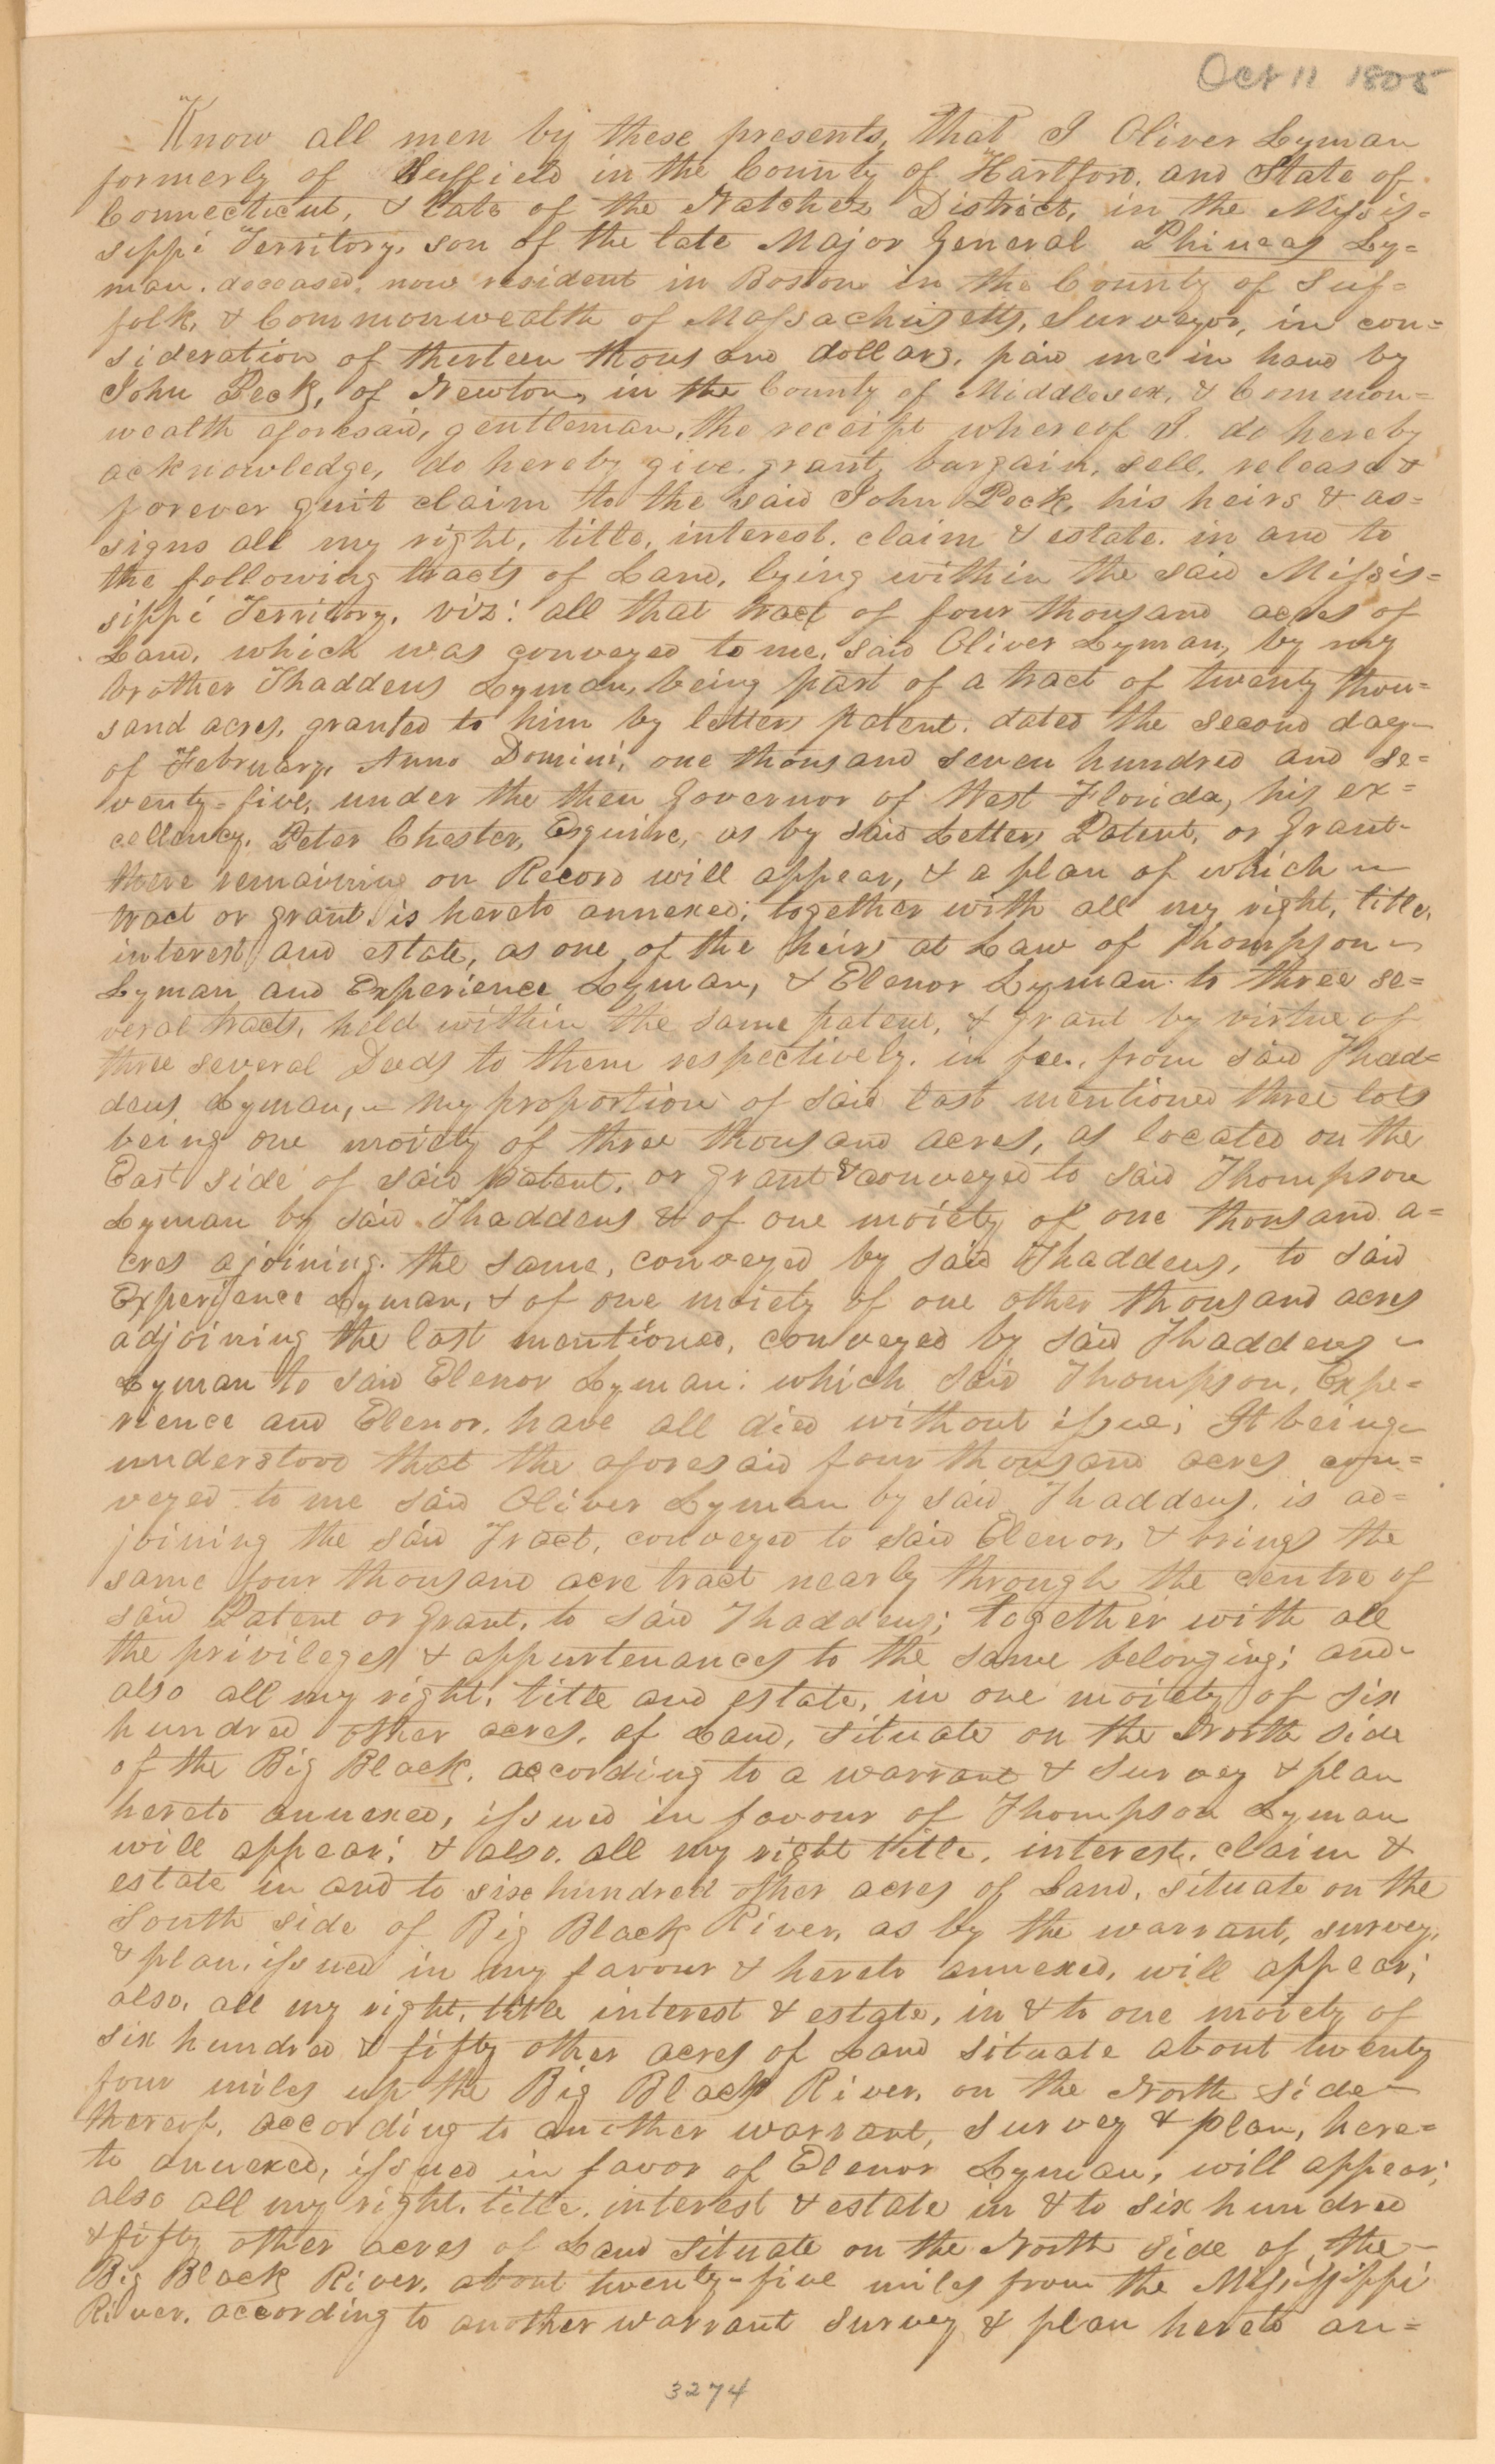 Oct 11 1805
Know all men by these presents, that I Oliver Lyman
formerly of Suffield in the County of Hartford, and State of
Connecticut, & late of the Natchez District, in the Missis=
sippi Territory, son of the late Major General Phineas Ly=
man, deceased, now resident in Boston in the County of Suf=
folk, & Commonwealth of Massachusetts, Surveyor, in con=
sideration of thirteen thousand dollars, paid me in hand by
John Peck, of Newton, in the County of Middlesex, & Common=
wealth aforesaid, gentleman, the receipt whereof I do hereby
acknowledge, do hereby give, grant, bargain, sell, release &
forever quit claim to the said John Peck, his heirs & as=
signs all my right, title, interest, claim & estate in and to
the following tracts of Land, lying within the said Missis=
sippi Territory, viz: all that tract of four thousand acres of
Land, which was conveyed to me, said Oliver Lyman, by my
brother Thaddeus Lyman, being part of a tract of twenty thou=
sand acres, granted to him by letters patent, dated the second day
of February, Anno Domini, one thousand seven hundred and se=
venty=five, under the then Governor of West Florida, his ex=
cellency, Peter Chester, Esquire, as by said Letters Patent, or Grant
there remaining on Record will appear, & a plan of which
tract or grant is hereto annexed; together with all my right, title,
interest and estate, as one of the heirs at Law of Thompson
Lyman and Experience Lyman, & Elenor Lyman to three se=
veral tracts, held within the same patent, & grant by virtue of
three several Deeds to them respectively, in fee, from said Thad=
deus Lyman, my proportion of said last mentioned three lots
being one moiety of three thousand acres, as located on the
East side of said patent, or grant & conveyed to said Thompson
Lyman by said Thaddeus & of one moiety of one thousand a=
cres ajoining the same, conveyed by said Thaddeus, to said
Experience Lyman, & of one moiety of one other thousand acres
adjoining the last mentioned, conveyed by said Thaddeus
Lyman to said Elenor Lyman: which said Thompson, Expe=
rience and Elenor, have all died without issue; It being
understood that the aforesaid four thousand acres con=
veyed to me said Oliver Lyman by said Thaddeus, is ad=
joining the said Tract, conveyed to said Elenor, & brings the
same four thousand acre tract nearly through the centre of
said Patent or Grant, to said Thaddeus; together with all
the privileges & appurtenances to the same belonging; and
also all my right, title and estate, in one moiety of six
hundred other acres, of Land, situate on the North side
of the Big Black, according to a warrant & survey & plan
hereto annexed, issued in favour of Thompson Lyman
will appear; & also, all my right title, interest, claim &
estate in and to six hundred other acres of Land, situate on the
South side of Big Black River, as by the warrant, survey,
& plan, issued in my favour & hereto annexed, will appear;
also, all my right, title interest & estate, in & to one moiety of
six hundred & fifty other acres of Land situate about twenty
four miles up the Big Black River, on the North side
thereof, according to another warrant, survey & plan, here=
to annexed, issued in favor of Elenor Lyman, will appear;
also all my right, title, interest & estate in & to six hundred
& fifty other acres of Land situate on the North side of the
Big Black River, about twenty=five miles from the Mississippi
River, according to another warrant survey & plan hereto an=
3274